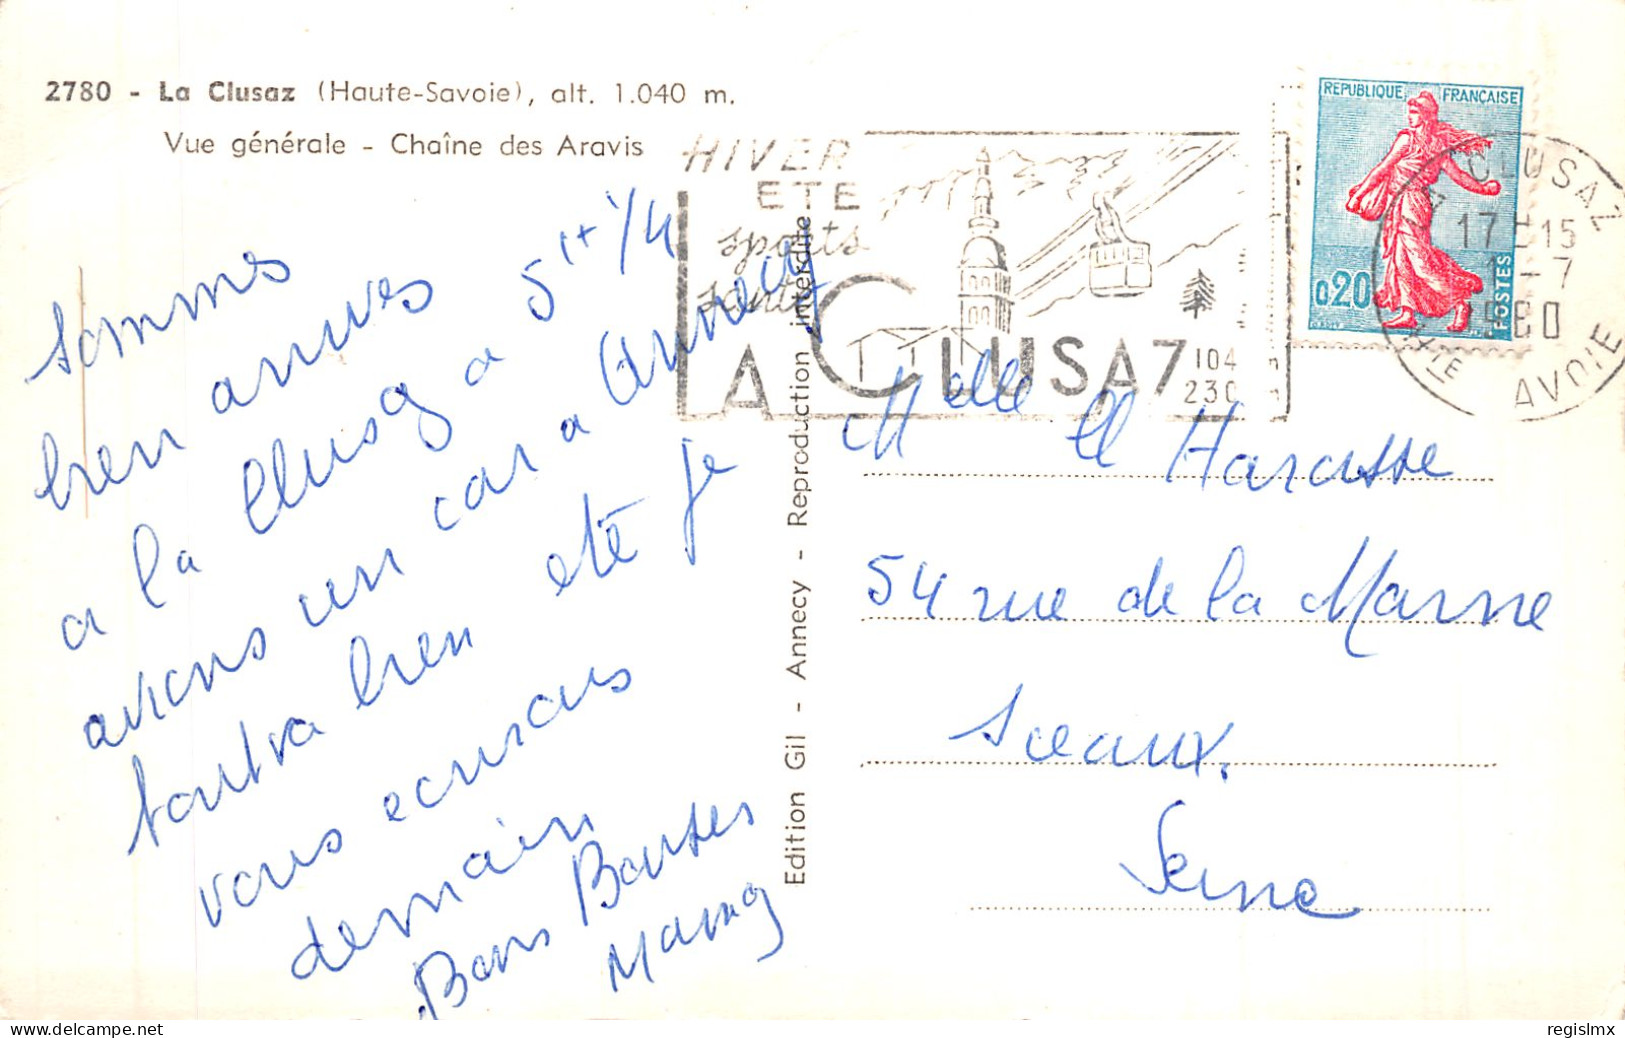 2780 - La Clusaz (Haute-Savoie), alt. 1.040 m.
Vue générale - Chaîne des Aravis
HIVER
ETE
sports
santé
A
LA CLUSAZ
1040
2300
REPUBLIQUE FRANÇAISE
0,20
POSTES
LA CLUSAZ
17H15
1-7
1960
HTE SAVOIE
Sommes
bien arrives
a la Clusaz a 5H 1/4
avions un car a Annecy
tout va bien ete je
vous ecrirais
demain
Bons Baisers
Edition Gil - Annecy - Reproduction interdite
Melle Harasse
54 rue de la Marne
Sceaux.
Seine
delcampe.net
regislmx